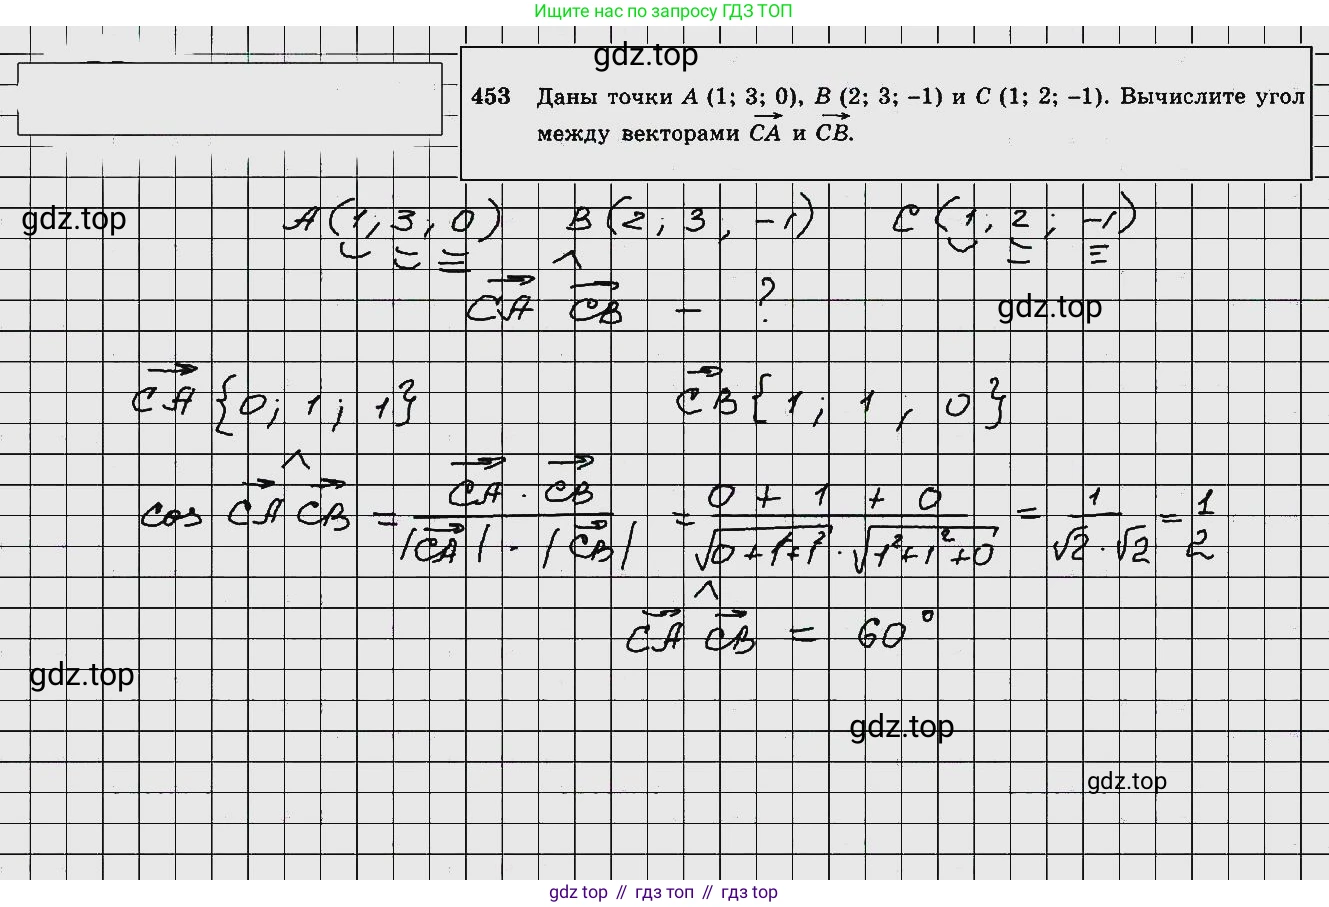 Ищите нас по запросу ГДЗ ТОП
gdz.top
453 Даны точки A (1; 3; 0), B (2; 3; –1) и C (1; 2; –1). Вычислите угол
между векторами C⃗A⃗ и C⃗B⃗.
gdz.top
A (1; 3; 0) B (2; 3; -1) C (1; 2; -1)
CA^CB - ?
gdz.top
CA {0; 1; 1} CB {1; 1; 0}
cos CA^CB = CA · CB / |CA| · |CB| = 0 + 1 + 0 / √0+1²+1² · √1²+1²+0 = 1 / √2 · √2 = 1/2
CA^CB = 60°
gdz.top
gdz.top
gdz.top
gdz top // гдз топ // gdz top